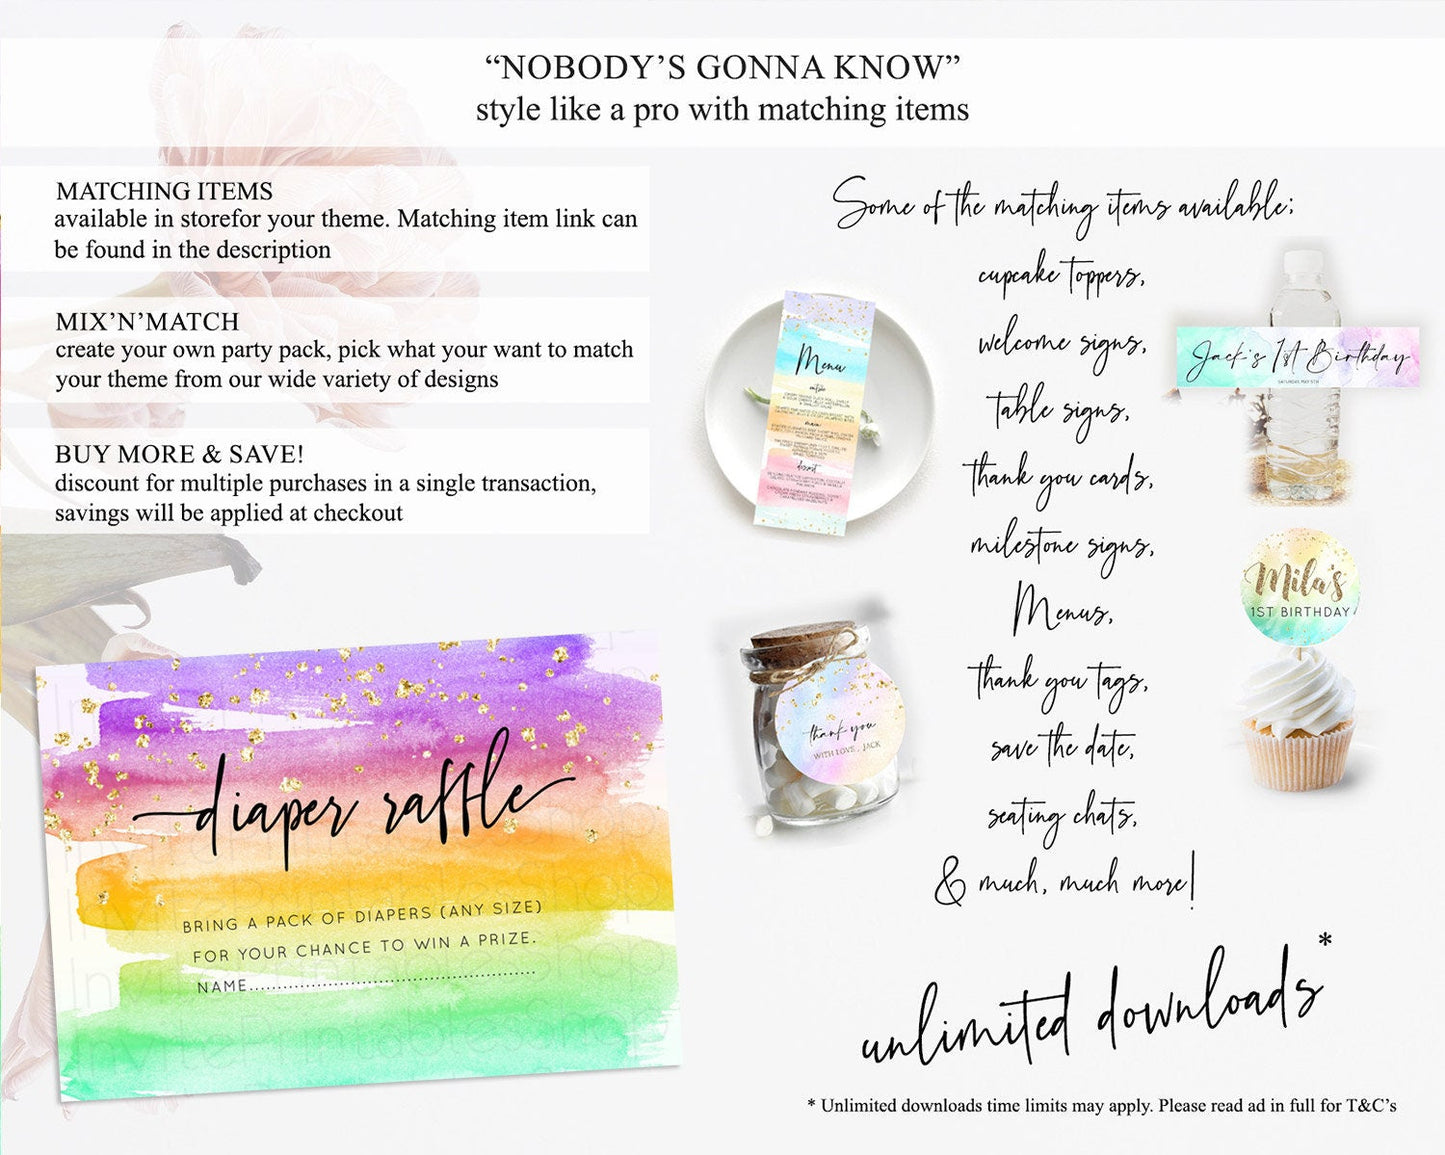 “NOBODY’S GONNA KNOW”
style like a pro with matching items
MATCHING ITEMS
available in storefor your theme. Matching item link can
be found in the description
MIX’N’MATCH
create your own party pack, pick what your want to match
your theme from our wide variety of designs
BUY MORE & SAVE!
discount for multiple purchases in a single transaction,
savings will be applied at checkout
diaper raffle
BRING A PACK OF DIAPERS (ANY SIZE)
FOR YOUR CHANCE TO WIN A PRIZE.
NAME
Some of the matching items available;
cupcake toppers,
welcome signs,
table signs,
thank you cards,
milestone signs,
Menus,
thank you tags,
save the date,
seating chats,
& much, much more!
Menu
entrée
main
dessert
thank you
WITH LOVE, JACK
Jack's 1st Birthday
SATURDAY, MAY 5TH
Mila's
1ST BIRTHDAY
unlimited downloads*
* Unlimited downloads time limits may apply. Please read ad in full for T&C’s